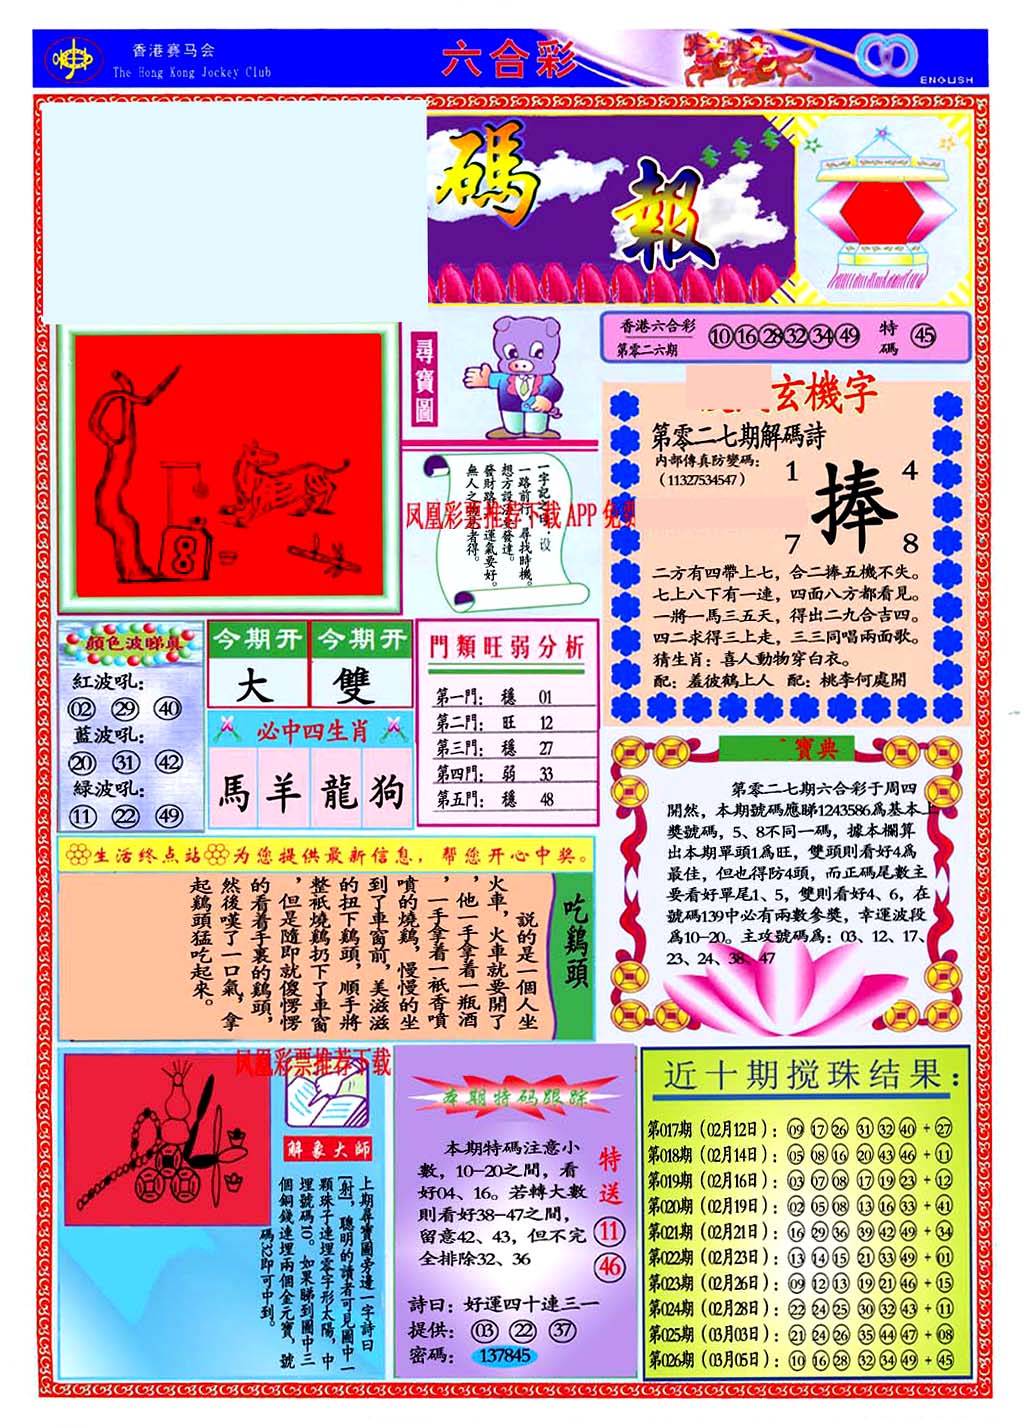 香港赛马会
The Hong Kong Jockey Club
六合彩
ENGLISH
碼
報
尋寶圖
香港六合彩
第零二六期
10 16 28 32 34 49
特碼
45
玄機字
第零二七期解碼詩
内部傳真防變碼：
（11327534547）
1 4
捧
7 8
二方有四帶上七，合二捧五機不失。
七上八下有一連，四面八方都看見。
一將一馬三五天，得出二九合吉四。
四二求得三上走，三三同唱兩面歌。
猜生肖：喜人動物穿白衣。
配：羞彼鶴上人 配：桃李何處開
凤凰彩票推荐下载 APP 免
顏色波睇真
紅波吼：
02 29 40
藍波吼：
20 31 42
綠波吼：
11 22 49
今期开
大
今期开
雙
必中四生肖
馬 羊 龍 狗
門類旺弱分析
第一門： 穩 01
第二門： 旺 12
第三門： 穩 27
第四門： 弱 33
第五門： 穩 48
寶典
第零二七期六合彩于周四
開然，本期號碼應睇1243586爲基本上
獎號碼，5、8不同一碼，據本欄算
出本期單頭1爲旺，雙頭則看好4爲
最佳，但也得防4頭，而正碼尾數主
要看好單尾1、5，雙則看好4、6，在
號碼139中必有兩數參獎，幸運波段
爲10-20。主攻號碼爲：03、12、17、
23、24、38、47
生活终点站 为您提供最新信息，帮您开心中奖。
吃鷄頭
説的是一個人坐
火車，火車就要開了
，他一手拿着一瓶酒
，一手拿着一衹香噴
噴的燒鷄，慢慢的坐
到了車窗前，美滋滋
的扭下鷄頭，順手將
整衹燒鷄扔下了車窗
，但是隨即就傻愣愣
的看着手裏的鷄頭，
然後嘆了一口氣，拿
起鷄頭猛吃起來。
凤凰彩票推荐下载
解象大師
上期尋寶圖旁邊一字詩曰
[射]，聰明的讀者可見圖中一
顆珠子連埋零字形太陽，中
埋號碼10。如果睇到圖中三
個銅錢連埋兩個金元寶，號
碼32即可中到。
本期特码跟踪
本期特碼注意小
數，10-20之間，看
好04、16。若轉大數
則看好38-47之間，
留意42、43，但不完
全排除32、36
特送
11
46
詩曰：好運四十連三一
提供： 03 22 37
密碼： 137845
近十期搅珠结果：
第017期（02月12日）： 09 17 26 31 32 40 + 27
第018期（02月14日）： 05 08 16 20 43 46 + 11
第019期（02月16日）： 03 07 08 17 19 23 + 12
第020期（02月19日）： 02 05 08 13 16 33 + 41
第021期（02月21日）： 16 29 36 39 42 49 + 34
第022期（02月23日）： 13 14 15 21 33 49 + 01
第023期（02月26日）： 09 12 13 19 21 46 + 15
第024期（02月28日）： 22 24 25 30 32 43 + 11
第025期（03月03日）： 21 24 26 35 44 47 + 08
第026期（03月05日）： 10 16 28 32 34 49 + 45